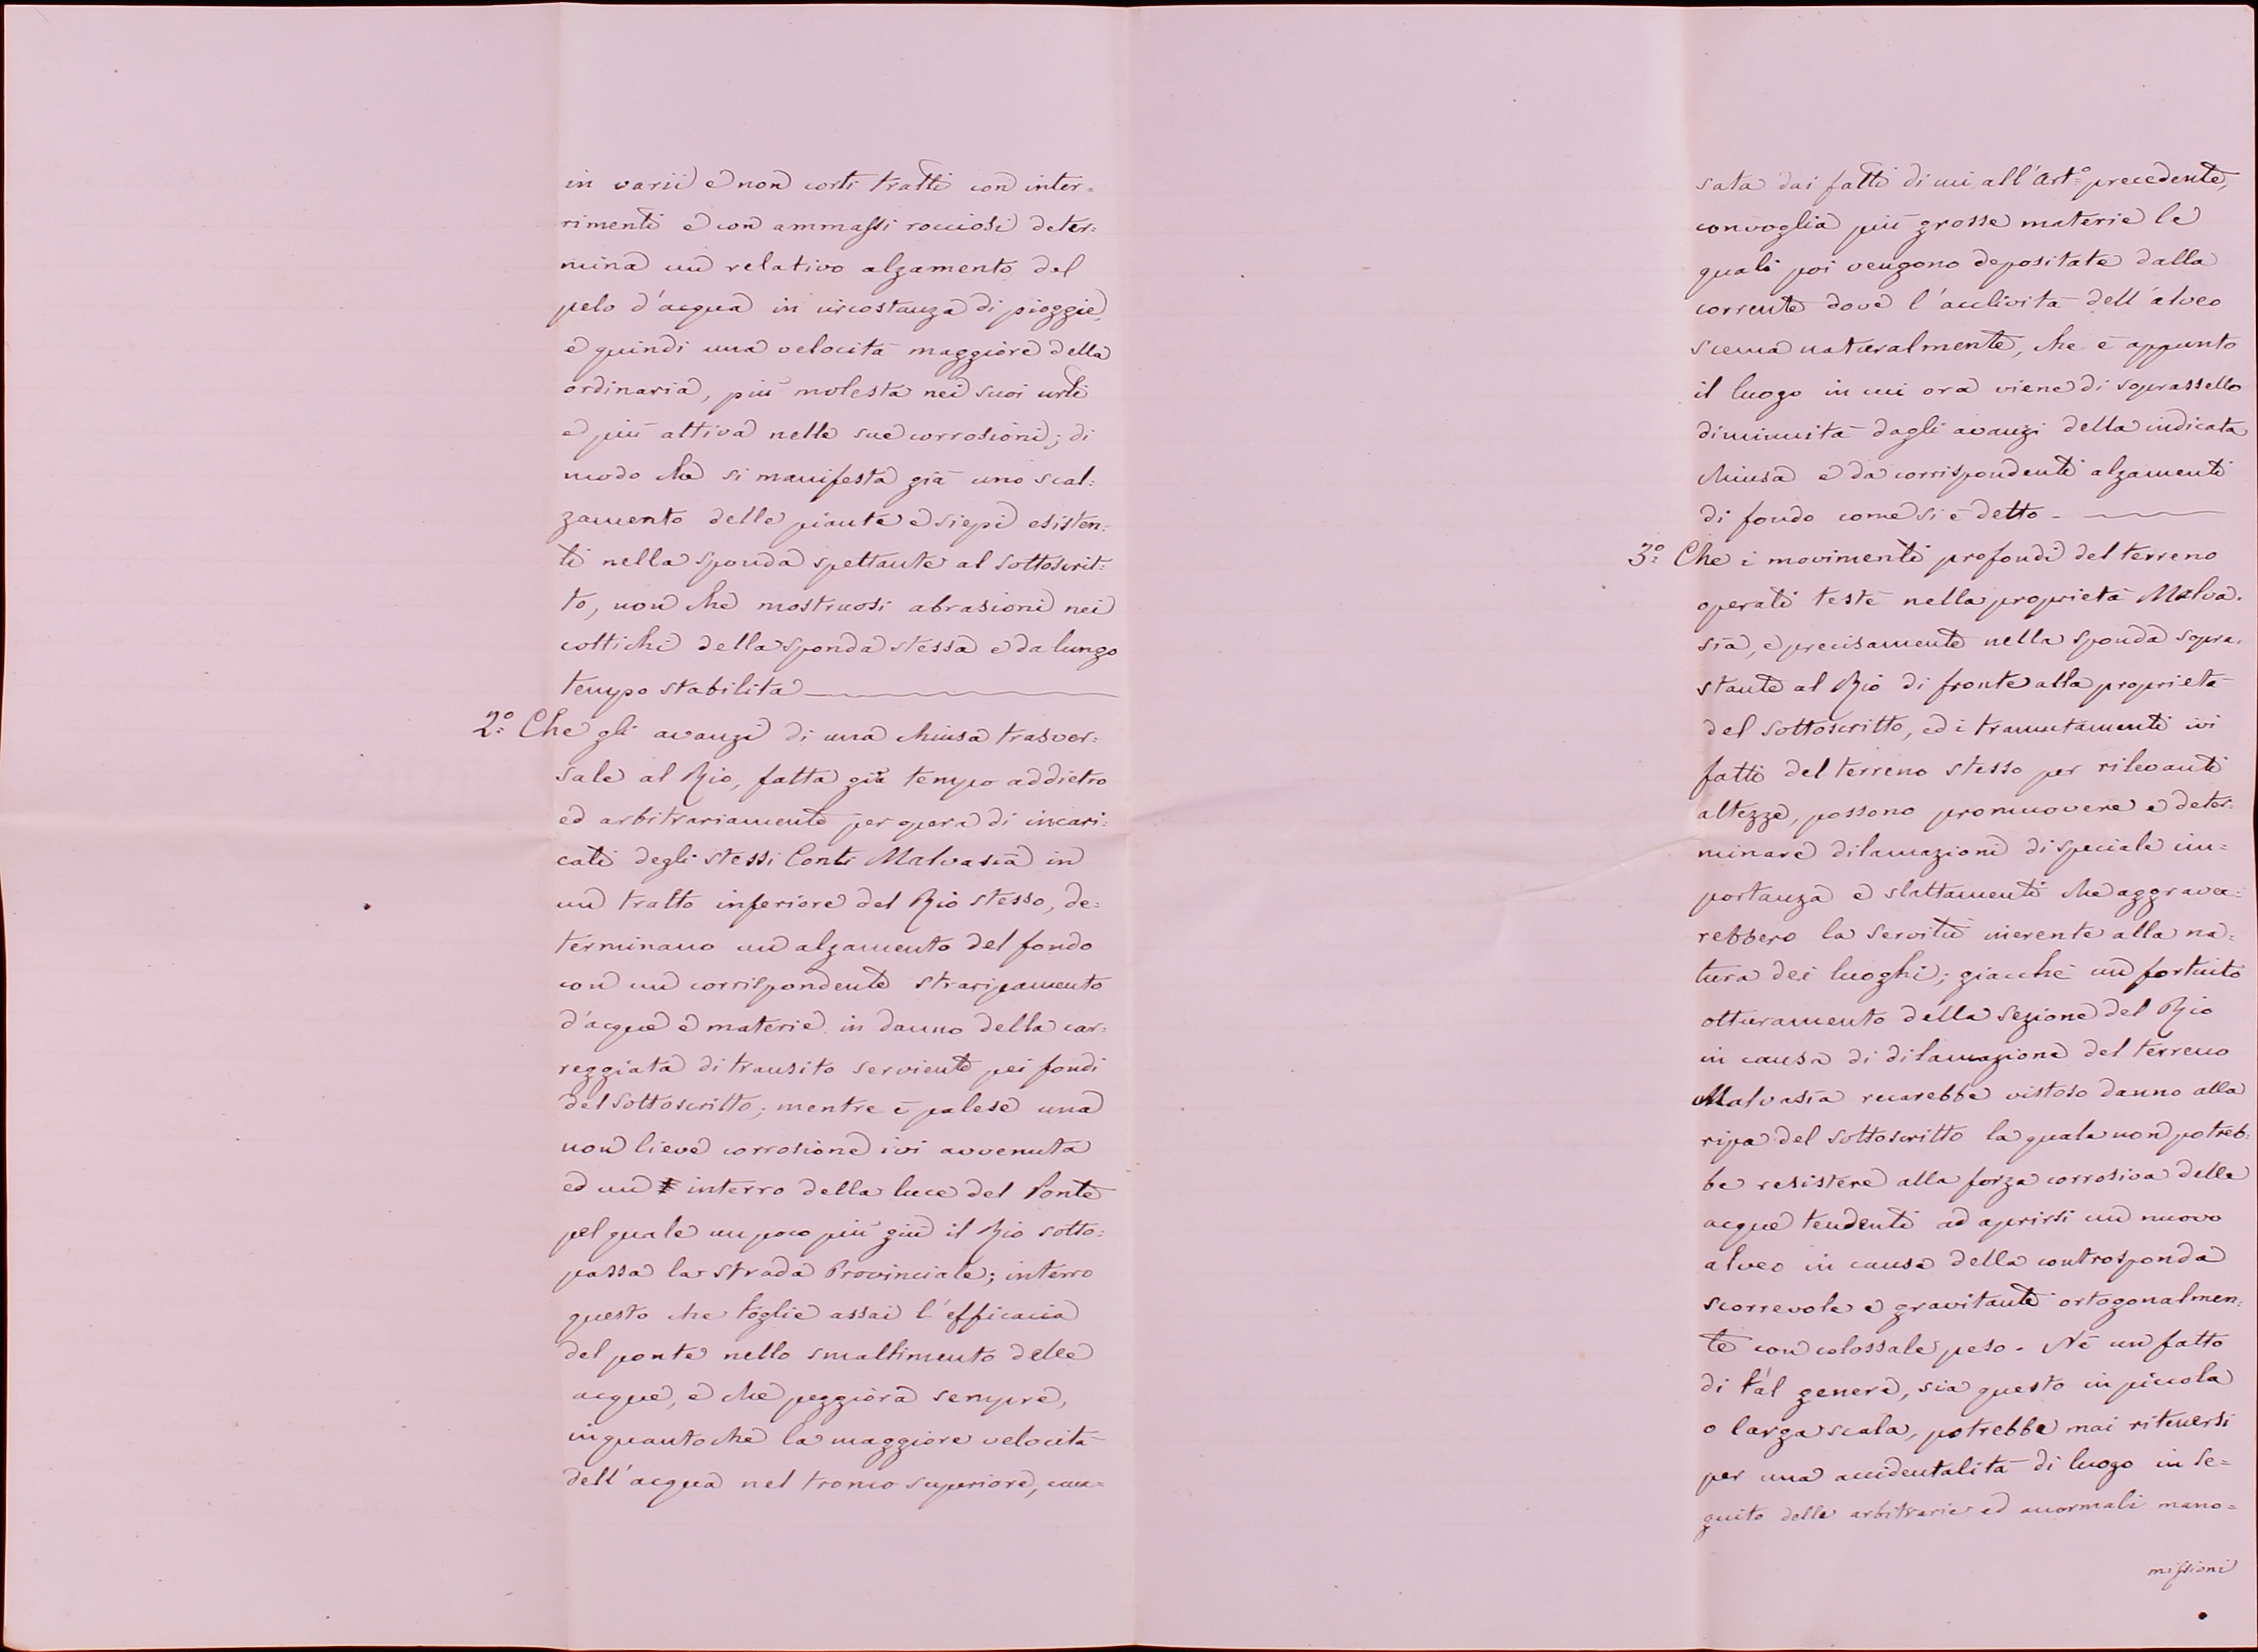 in varii e non corti tratti con inter=
rimenti e con ammassi rocciosi deter=
mina un relativo alzamento del
pelo d'acqua in circostanza di pioggie,
e quindi una velocità maggiore della
ordinaria, più molesta nei suoi urti
e più attiva nelle sue corrosioni; di
modo che si manifesta già uno scal=
zamento delle piante e siepi esisten=
ti nella sponda spettante al sottoscrit=
to, non che mostruosi abrasioni nei
cottichi della sponda stessa e da lungo
tempo stabilita
2.º Che gli avanzi di una chiusa trasver=
sale al Rio, fatta già tempo addietro
ed arbitrariamente per opera di incari=
cati degli stessi Conti Malvasia in
un tratto inferiore del Rio stesso, de=
terminano un alzamento del fondo
con un corrispondente straripamento
d'acque e materie in danno della car=
reggiata di transito serviente pei fondi
del sottoscritto; mentre è palese una
non lieve corrosione ivi avvenuta
ed un interro della luce del Ponte
pel quale un poco più giù il Rio sotto=
passa la strada Provinciale; interro
questo che toglie assai l'efficacia
del ponte nello smaltimento delle
acque, e che peggiora sempre,
inquantoché la maggiore velocità
dell'acqua nel tronco superiore, cau=
sata dai fatti di cui all'Art.º precedente,
convoglia più grosse materie le
quali poi vengono depositate dalla
corrente dove l'acclività dell'alveo
scema naturalmente, che è appunto
il luogo in cui ora viene di soprassello
diminuita dagli avanzi della indicata
chiusa e da corrispondenti alzamenti
di fondo come si è detto -
3.º Che i movimenti profondi del terreno
operati testè nella proprietà Malva=
sia, e precisamente nella sponda sopra=
stante al Rio di fronte alla proprietà
del sottoscritto, ed i tramutamenti ivi
fatti del terreno stesso per rilevanti
altezze, possono promuovere e deter=
minare dilamazioni di speciale im=
portanza e slattamenti che aggrave=
rebbero la servitù inerente alla na=
tura dei luoghi; giacché un fortuito
otturamento della sezione del Rio
in causa di dilamazione del terreno
Malvasia recarebbe vistoso danno alla
ripa del sottoscritto la quale non potreb=
be resistere alla forza corrosiva delle
acque tendenti ad aprirsi un nuovo
alveo in causa della controsponda
scorrevole e gravitante ortogonalmen=
te con colossale peso. Nè un fatto
di tal genere, sia questo in piccola
o larga scala, potrebbe mai ritenersi
per una accidentalità di luogo in se=
guito delle arbitrarie ed anormali mano=
missioni